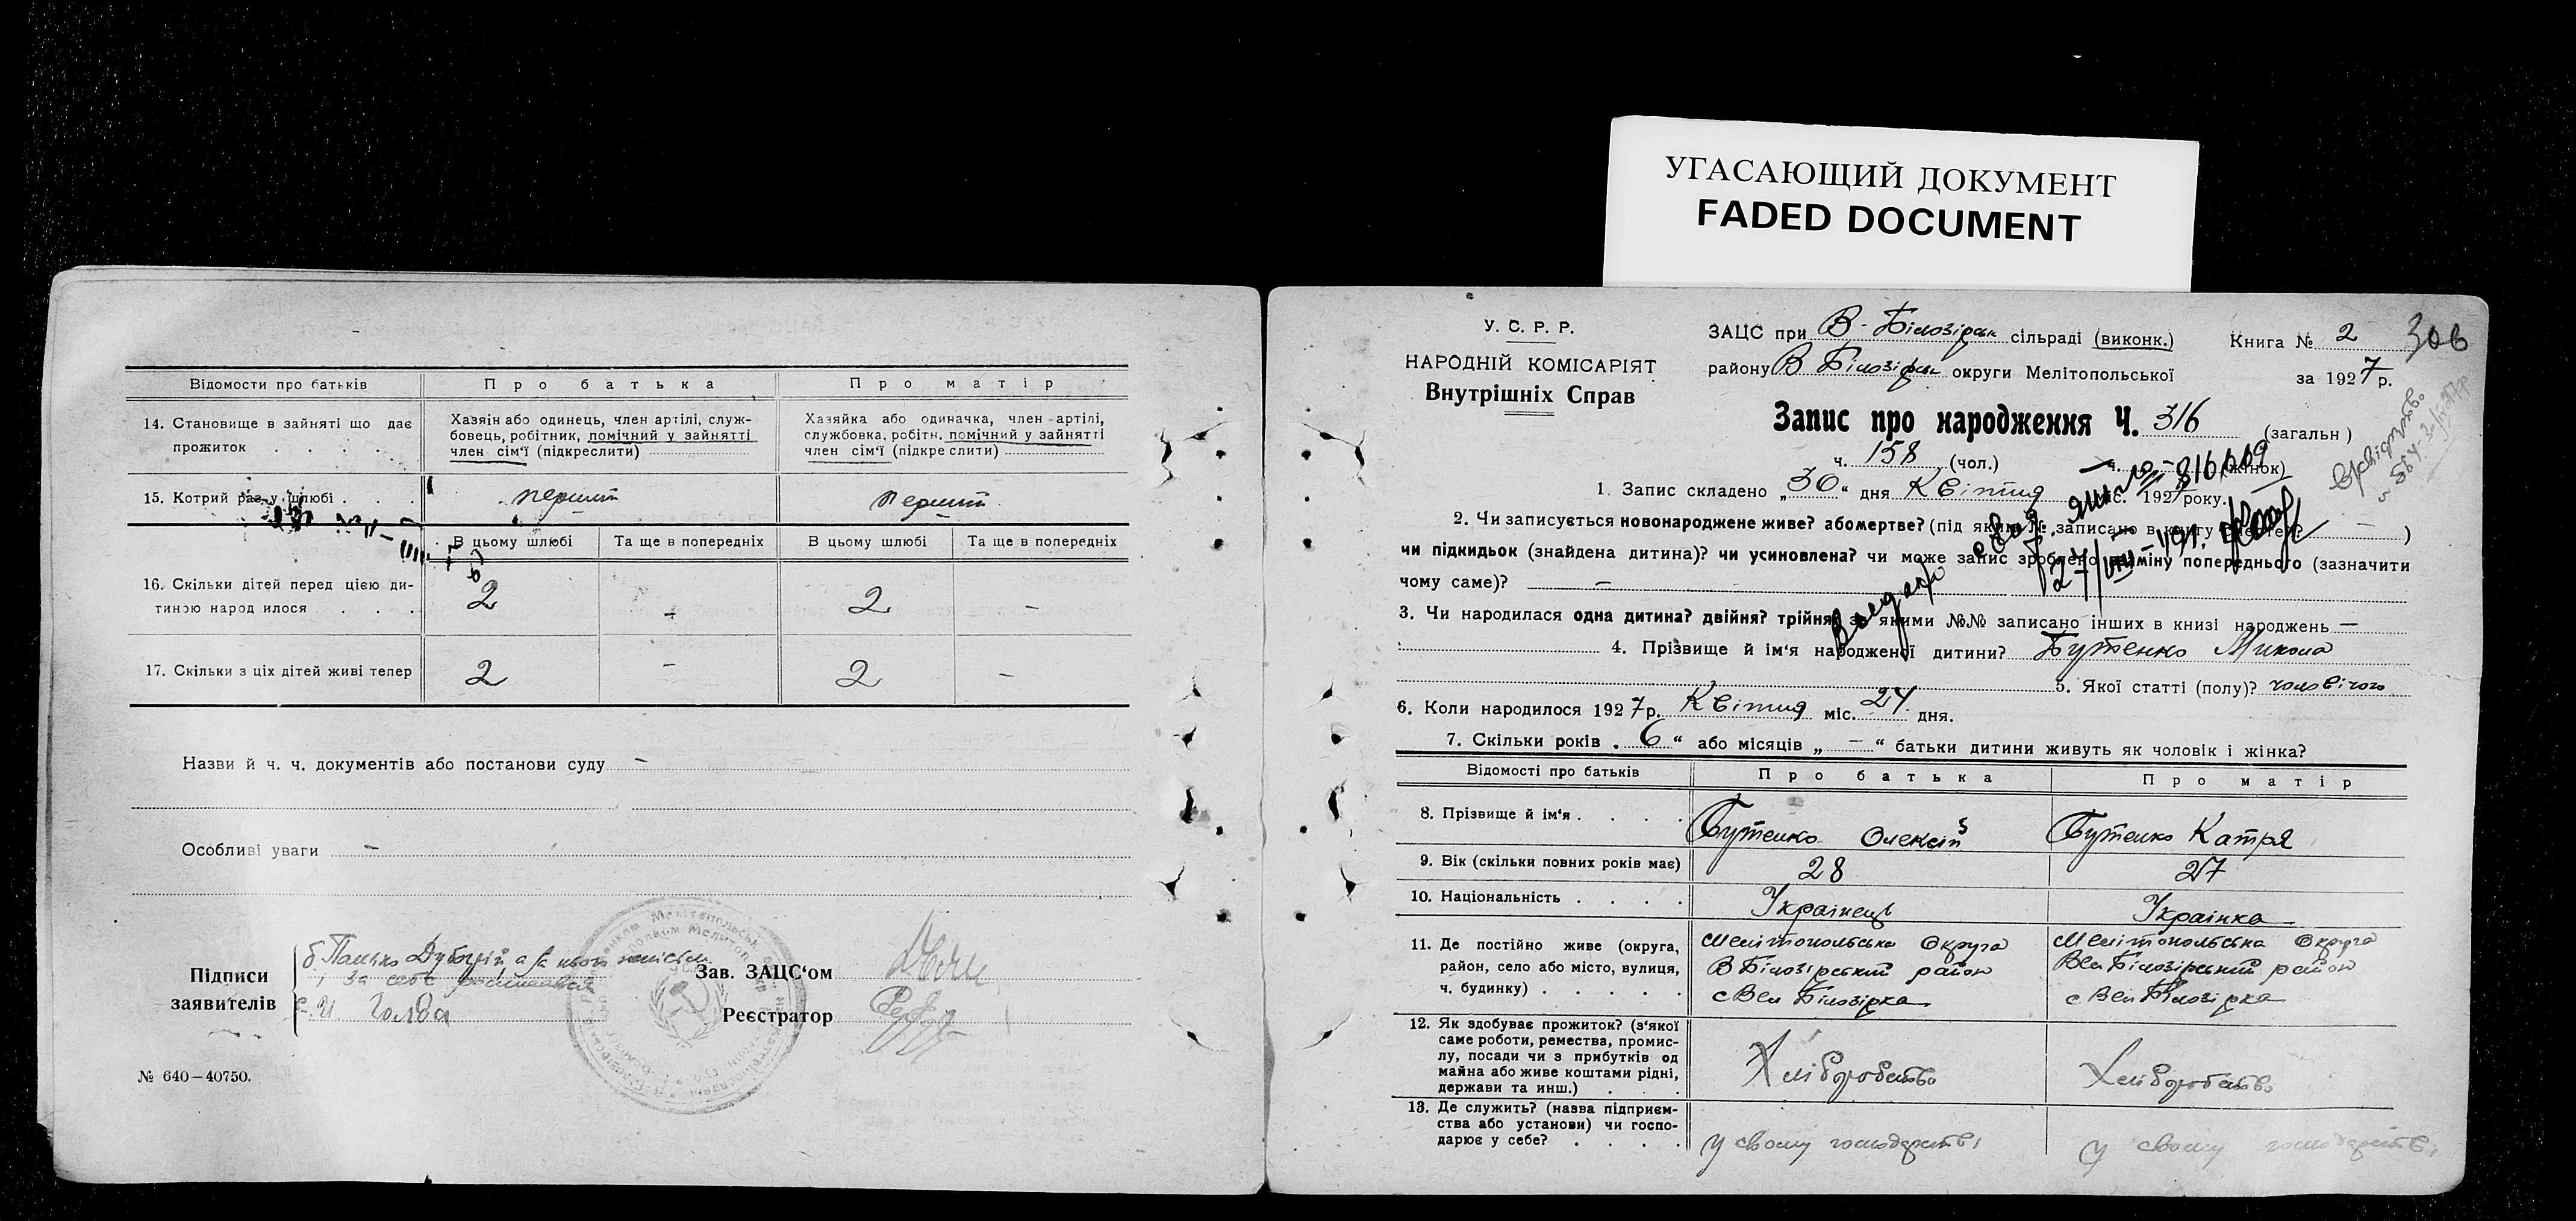 УГАСАЮЩИЙ ДОКУМЕНТ
FADED DOCUMENT
Відомости про батьків
Про батька
Про матір
14. Становище в зайняті що дає прожиток . . . .
Хазяїн або одинець, член артілі, служ-
бовець, робітник, помічний у зайнятті
член сім'ї (підкреслити)
Хазяйка або одиначка, член артілі,
службовка, робітн. помічний у зайнятті
член сім'ї (підкреслити)
15. Котрий раз у шлюбі . . . перший перший
В цьому шлюбі Та ще в попередніх В цьому шлюбі Та ще в попередніх
16. Скільки дітей перед цією ди-
тиною народилося . . . 2 – 2 –
17. Скільки з ціх дітей живі тепер 2 – 2 –
Назви й ч. ч. документів або постанови суду –
Особливі уваги –
Підписи
заявителів
Зав. ЗАЦС'ом
Реєстратор
№ 640–40750.
У. С. Р. Р.
НАРОДНІЙ КОМІСАРІЯТ
Внутрішніх Справ
ЗАЦС при В-Білозірськ сільраді (виконк.) Книга № 2 306
району В Білозірськ округи Мелітопольської за 1927 р.
Запис про народження Ч. 316 (загальн)
ч. 158 (чол.) ч. – (жінок)
1. Запис складено „30" дня Квітня міс. 1927 року.
2. Чи записується новонароджене живе? або мертве? (під яким № записано в книгу смертей? – )
чи підкидьок (знайдена дитина)? чи усиновлена? чи може запис зроблено на зміну попереднього (зазначити
чому саме)? –
3. Чи народилася одна дитина? двійня? трійня? за якими №№ записано інших в книзі народжень –
4. Прізвище й ім'я народженої дитини? Бутенко Микола
5. Якої статті (полу)? чоловічого
6. Коли народилося 1927 р. Квітня міс. 24 дня.
7. Скільки років „6" або місяців „–" батьки дитини живуть як чоловік і жінка?
Відомості про батьків Про батька Про матір
8. Прізвище й ім'я . . . . Бутенко Олексій Бутенко Катря
9. Вік (скільки повних років має) 28 27
10. Національність . . . . Українець Українка
11. Де постійно живе (округа,
район, село або місто, вулиця,
ч. будинку) . . . . .
Мелітопольська Округа
В Білозірський район
с Вел Білозірка
Мелітопольська Округа
Вел Білозірський район
с Вел Білозірка
12. Як здобуває прожиток? (з'якої
саме роботи, ремества, промис-
лу, посади чи з прибутків од
майна або живе коштами рідні,
держави та инш.) . . .
Хліборобство Хліборобство
13. Де служить? (назва підприєм-
ства або установи) чи госпо-
дарює у себе? . . . .
У свому господарстві У свому господарстві